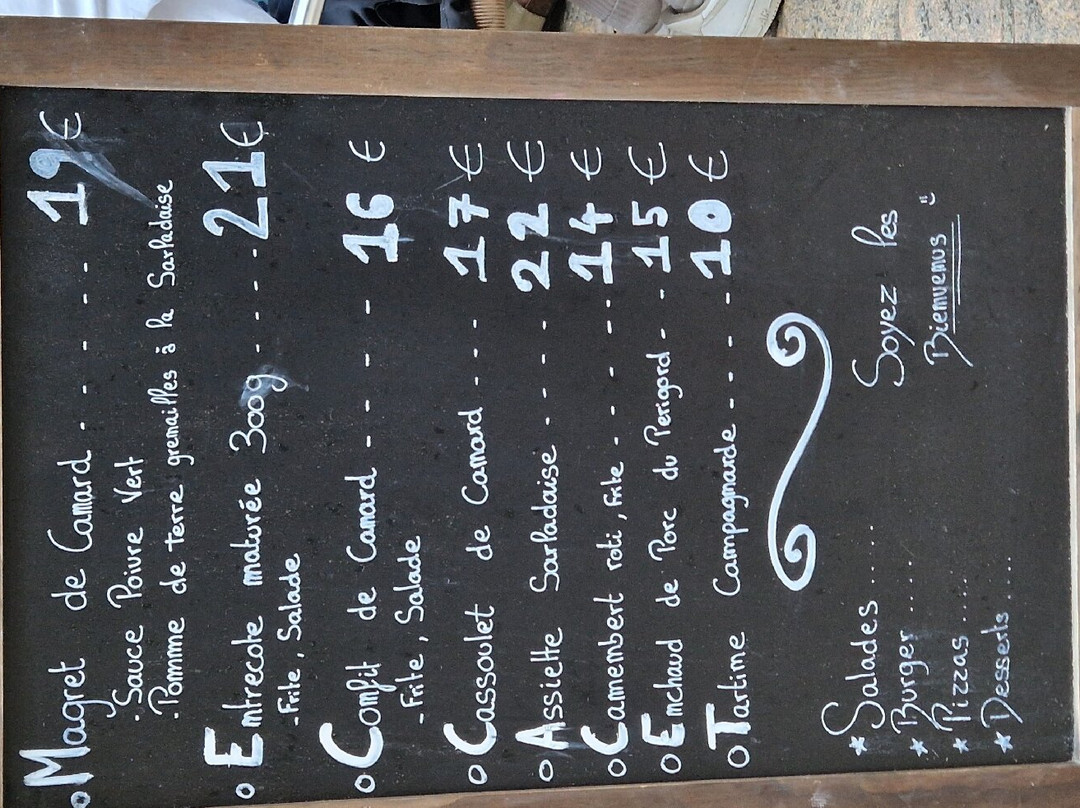 o Magret de Canard - - - - - - 19€
. Sauce Poivre Vert
. Pomme de terre grenailles à la Sarladaise
o Entrecote maturée 300g - - - - 21€
- Frite, Salade
o Confit de Canard - - - - - 16€
- Frite, Salade
o Cassoulet de Canard - - - 17€
o Assiette Sarladaise - - - - - 22€
o Camembert roti, Frite - - - - - 14€
o Enchaud de Porc du Perigord - - 15€
o Tartine Campagnarde - - - - 10€
* Salades ......
* Burger .....
* Pizzas ....
* Desserts .....
Soyez les
Bienvenus